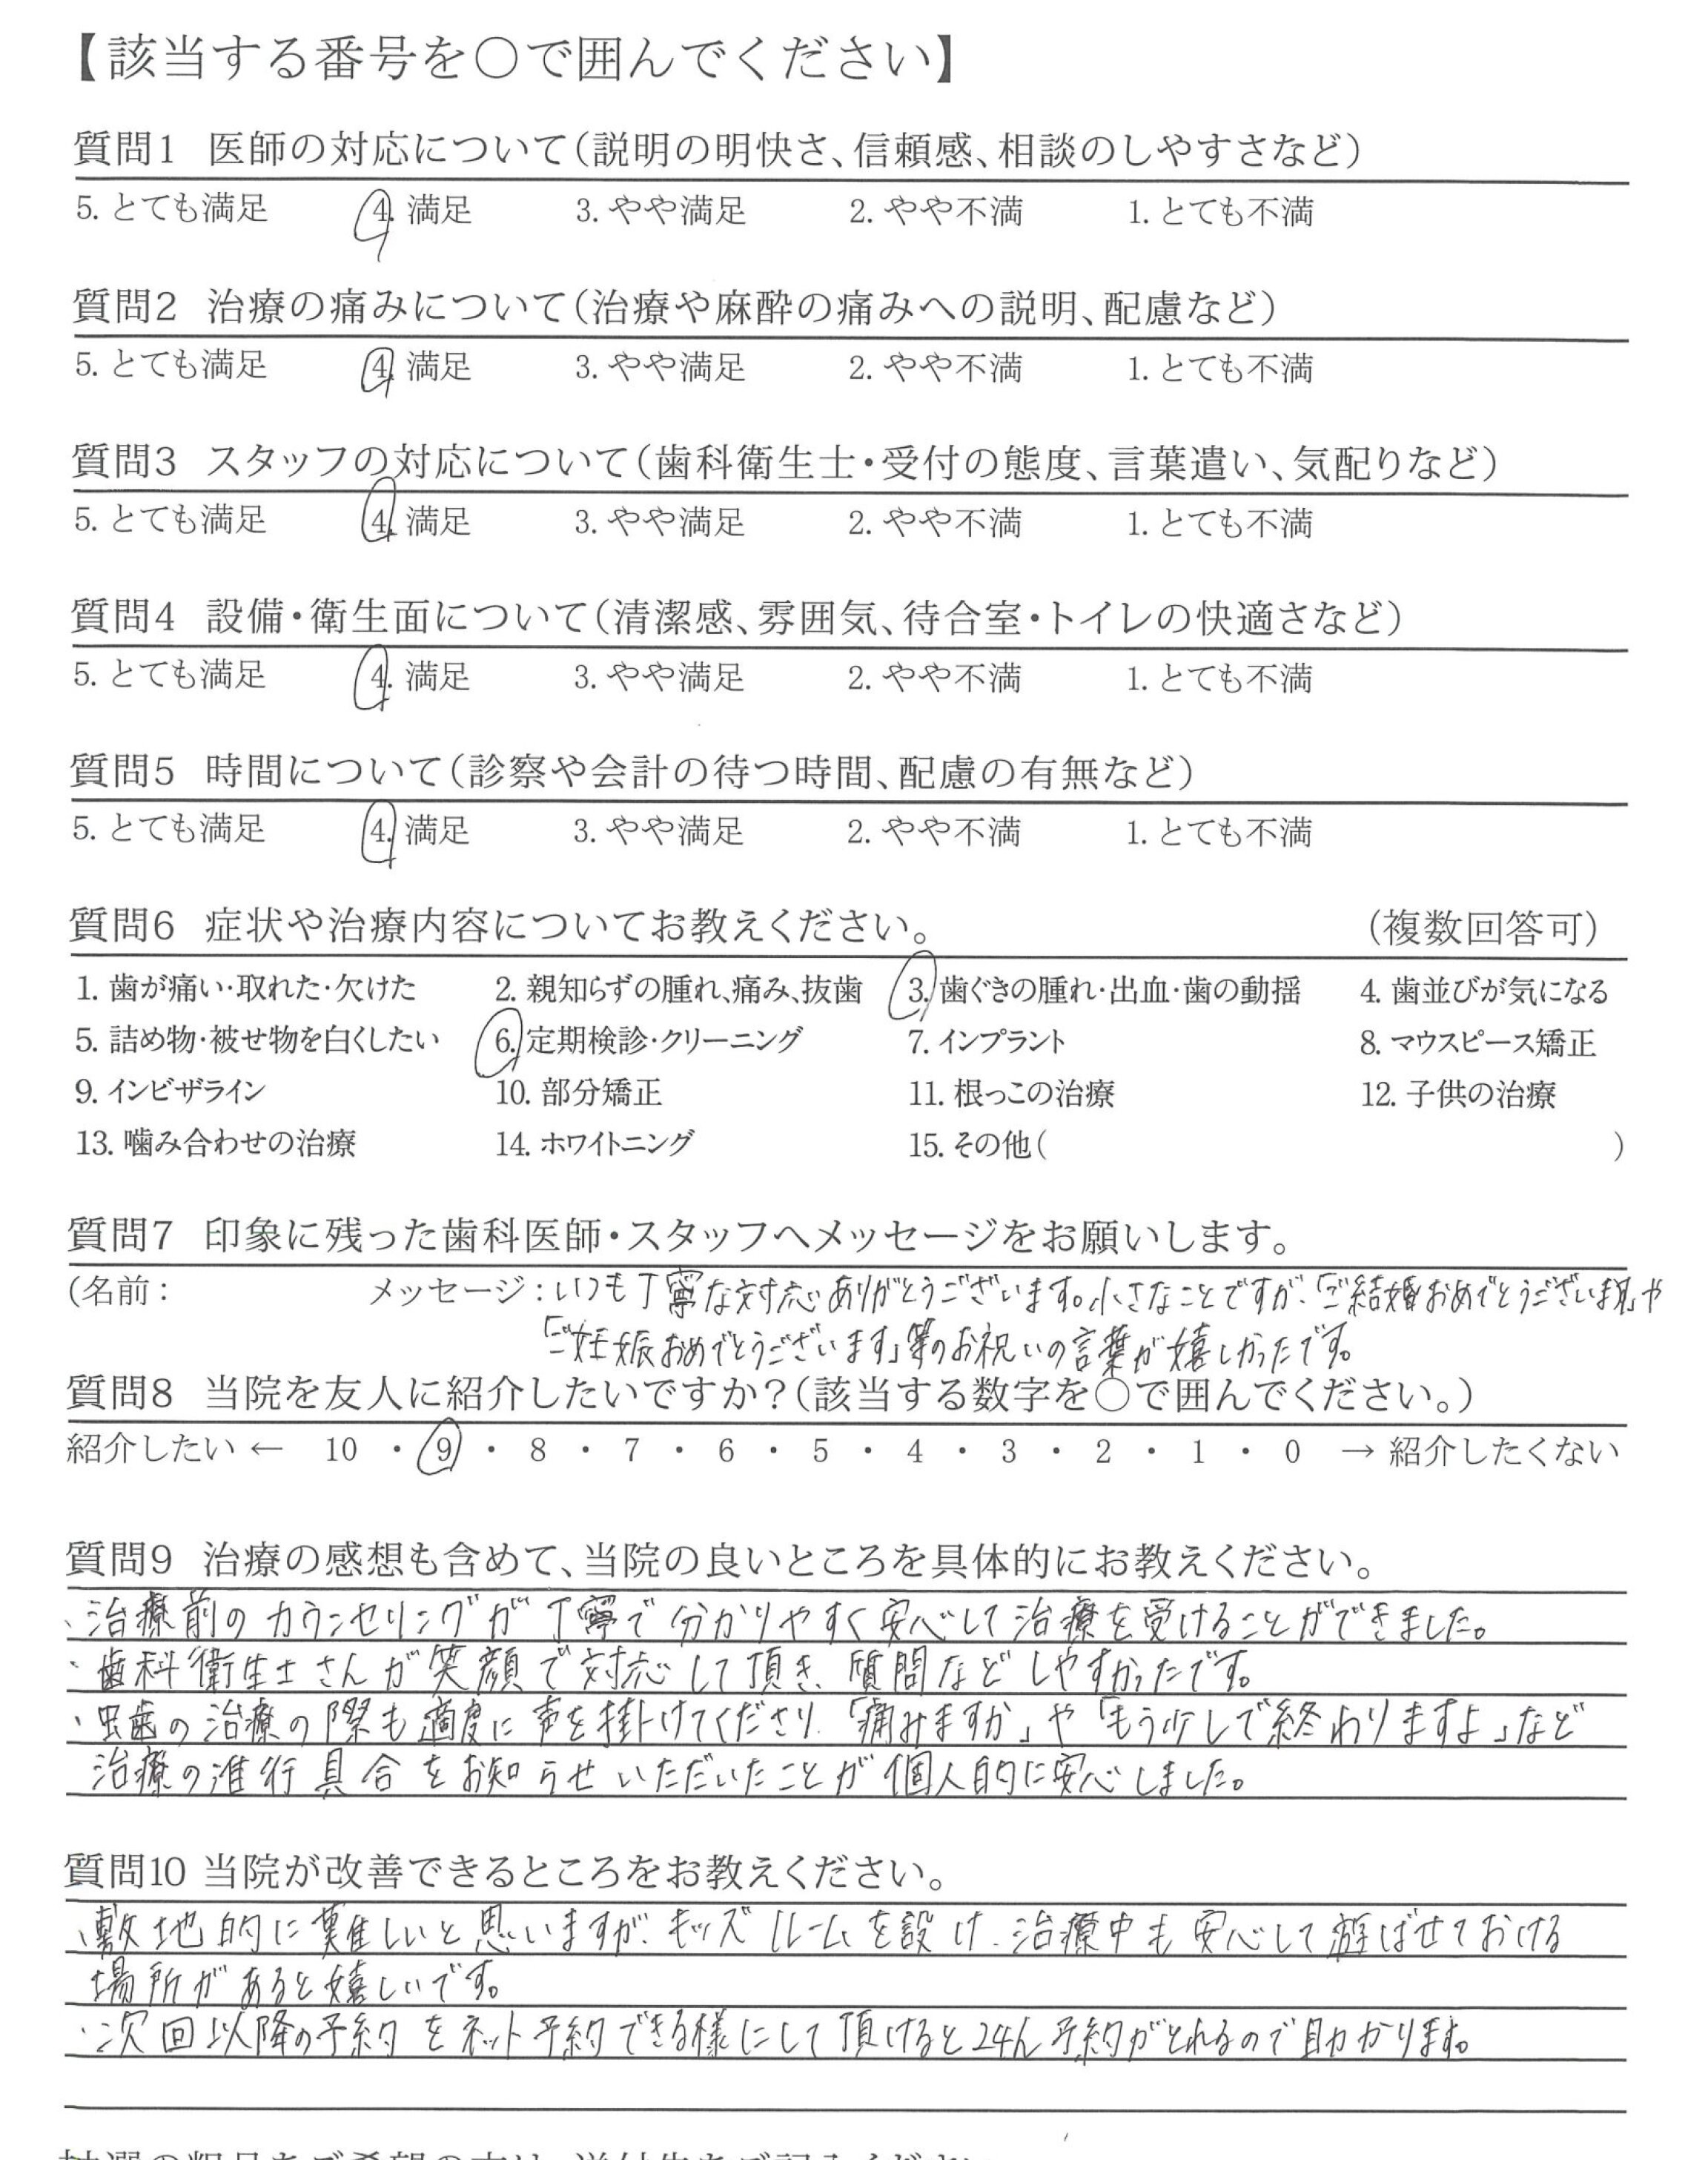 【該当する番号を○で囲んでください】
質問1 医師の対応について(説明の明快さ、信頼感、相談のしやすさなど)
5. とても満足 4. 満足 3. やや満足 2. やや不満 1. とても不満
質問2 治療の痛みについて(治療や麻酔の痛みへの説明、配慮など)
5. とても満足 4. 満足 3. やや満足 2. やや不満 1. とても不満
質問3 スタッフの対応について(歯科衛生士・受付の態度、言葉遣い、気配りなど)
5. とても満足 4. 満足 3. やや満足 2. やや不満 1. とても不満
質問4 設備・衛生面について(清潔感、雰囲気、待合室・トイレの快適さなど)
5. とても満足 4. 満足 3. やや満足 2. やや不満 1. とても不満
質問5 時間について(診察や会計の待つ時間、配慮の有無など)
5. とても満足 4. 満足 3. やや満足 2. やや不満 1. とても不満
質問6 症状や治療内容についてお教えください。 (複数回答可)
1. 歯が痛い・取れた・欠けた 2. 親知らずの腫れ、痛み、抜歯 3. 歯ぐきの腫れ・出血・歯の動揺 4. 歯並びが気になる
5. 詰め物・被せ物を白くしたい 6. 定期検診・クリーニング 7. インプラント 8. マウスピース矯正
9. インビザライン 10. 部分矯正 11. 根っこの治療 12. 子供の治療
13. 噛み合わせの治療 14. ホワイトニング 15. その他( )
質問7 印象に残った歯科医師・スタッフへメッセージをお願いします。
(名前: メッセージ:いつも丁寧な対応ありがとうございます。小さなことですが、「ご結婚おめでとうございます」や
「ご妊娠おめでとうございます」等のお祝いの言葉が嬉しかったです。
質問8 当院を友人に紹介したいですか?(該当する数字を○で囲んでください。)
紹介したい ← 10 ・ 9 ・ 8 ・ 7 ・ 6 ・ 5 ・ 4 ・ 3 ・ 2 ・ 1 ・ 0 → 紹介したくない
質問9 治療の感想も含めて、当院の良いところを具体的にお教えください。
・治療前のカウンセリングが丁寧で分かりやすく安心して治療を受けることができました。
・歯科衛生士さんが笑顔で対応して頂き、質問などしやすかったです。
・虫歯の治療の際も適度に声を掛けてくださり、「痛みますか」や「もう少しで終わりますよ」など
治療の進行具合をお知らせいただいたことが個人的に安心しました。
質問10 当院が改善できるところをお教えください。
・敷地的に難しいと思いますが、キッズルームを設け、治療中も安心して遊ばせておける
場所があると嬉しいです。
・次回以降の予約をネット予約できる様にして頂けると24h予約がとれるので助かります。